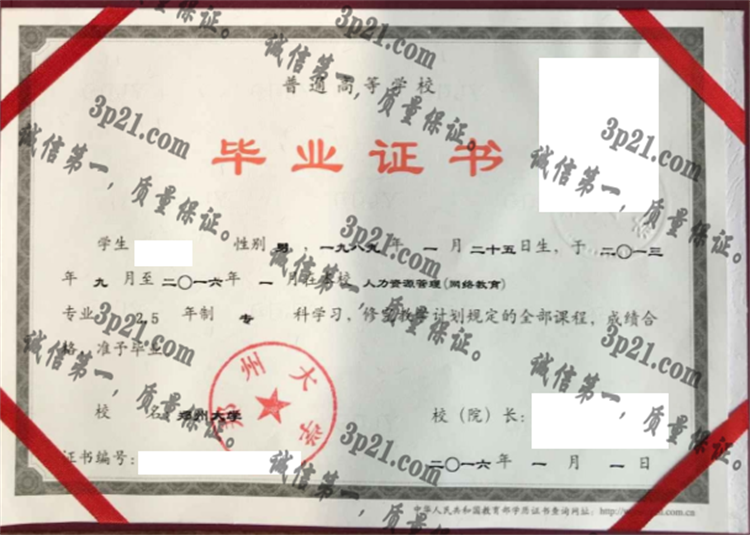 普通高等学校
毕业证书
学生 性别 男，一九八九年 一月二十五日生，于 二〇一三
年 九 月至二〇一六年 一 月在本校 人力资源管理(网络教育)
专业 2.5 年制 专 科学习，修完教学计划规定的全部课程，成绩合
格，准予毕业。
郑州大学
校 名 郑州大学 校（院）长：
证书编号： 二〇一六年 一 月 一 日
中华人民共和国教育部学历证书查询网址：
3p21.com
诚信第一，质量保证。
3p21.com
诚信第一，质量保证。
3p21.com
诚信第一，质量保证。
3p21.com
诚信第一，质量保证。
3p21.com
诚信第一，质量保证。
3p21.com
诚信第一，质量保证。
3p21.com
诚信第一，质量保证。
3p21.com
诚信第一，质量保证。